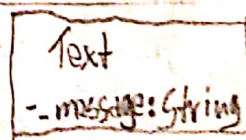 Text
-_message: String